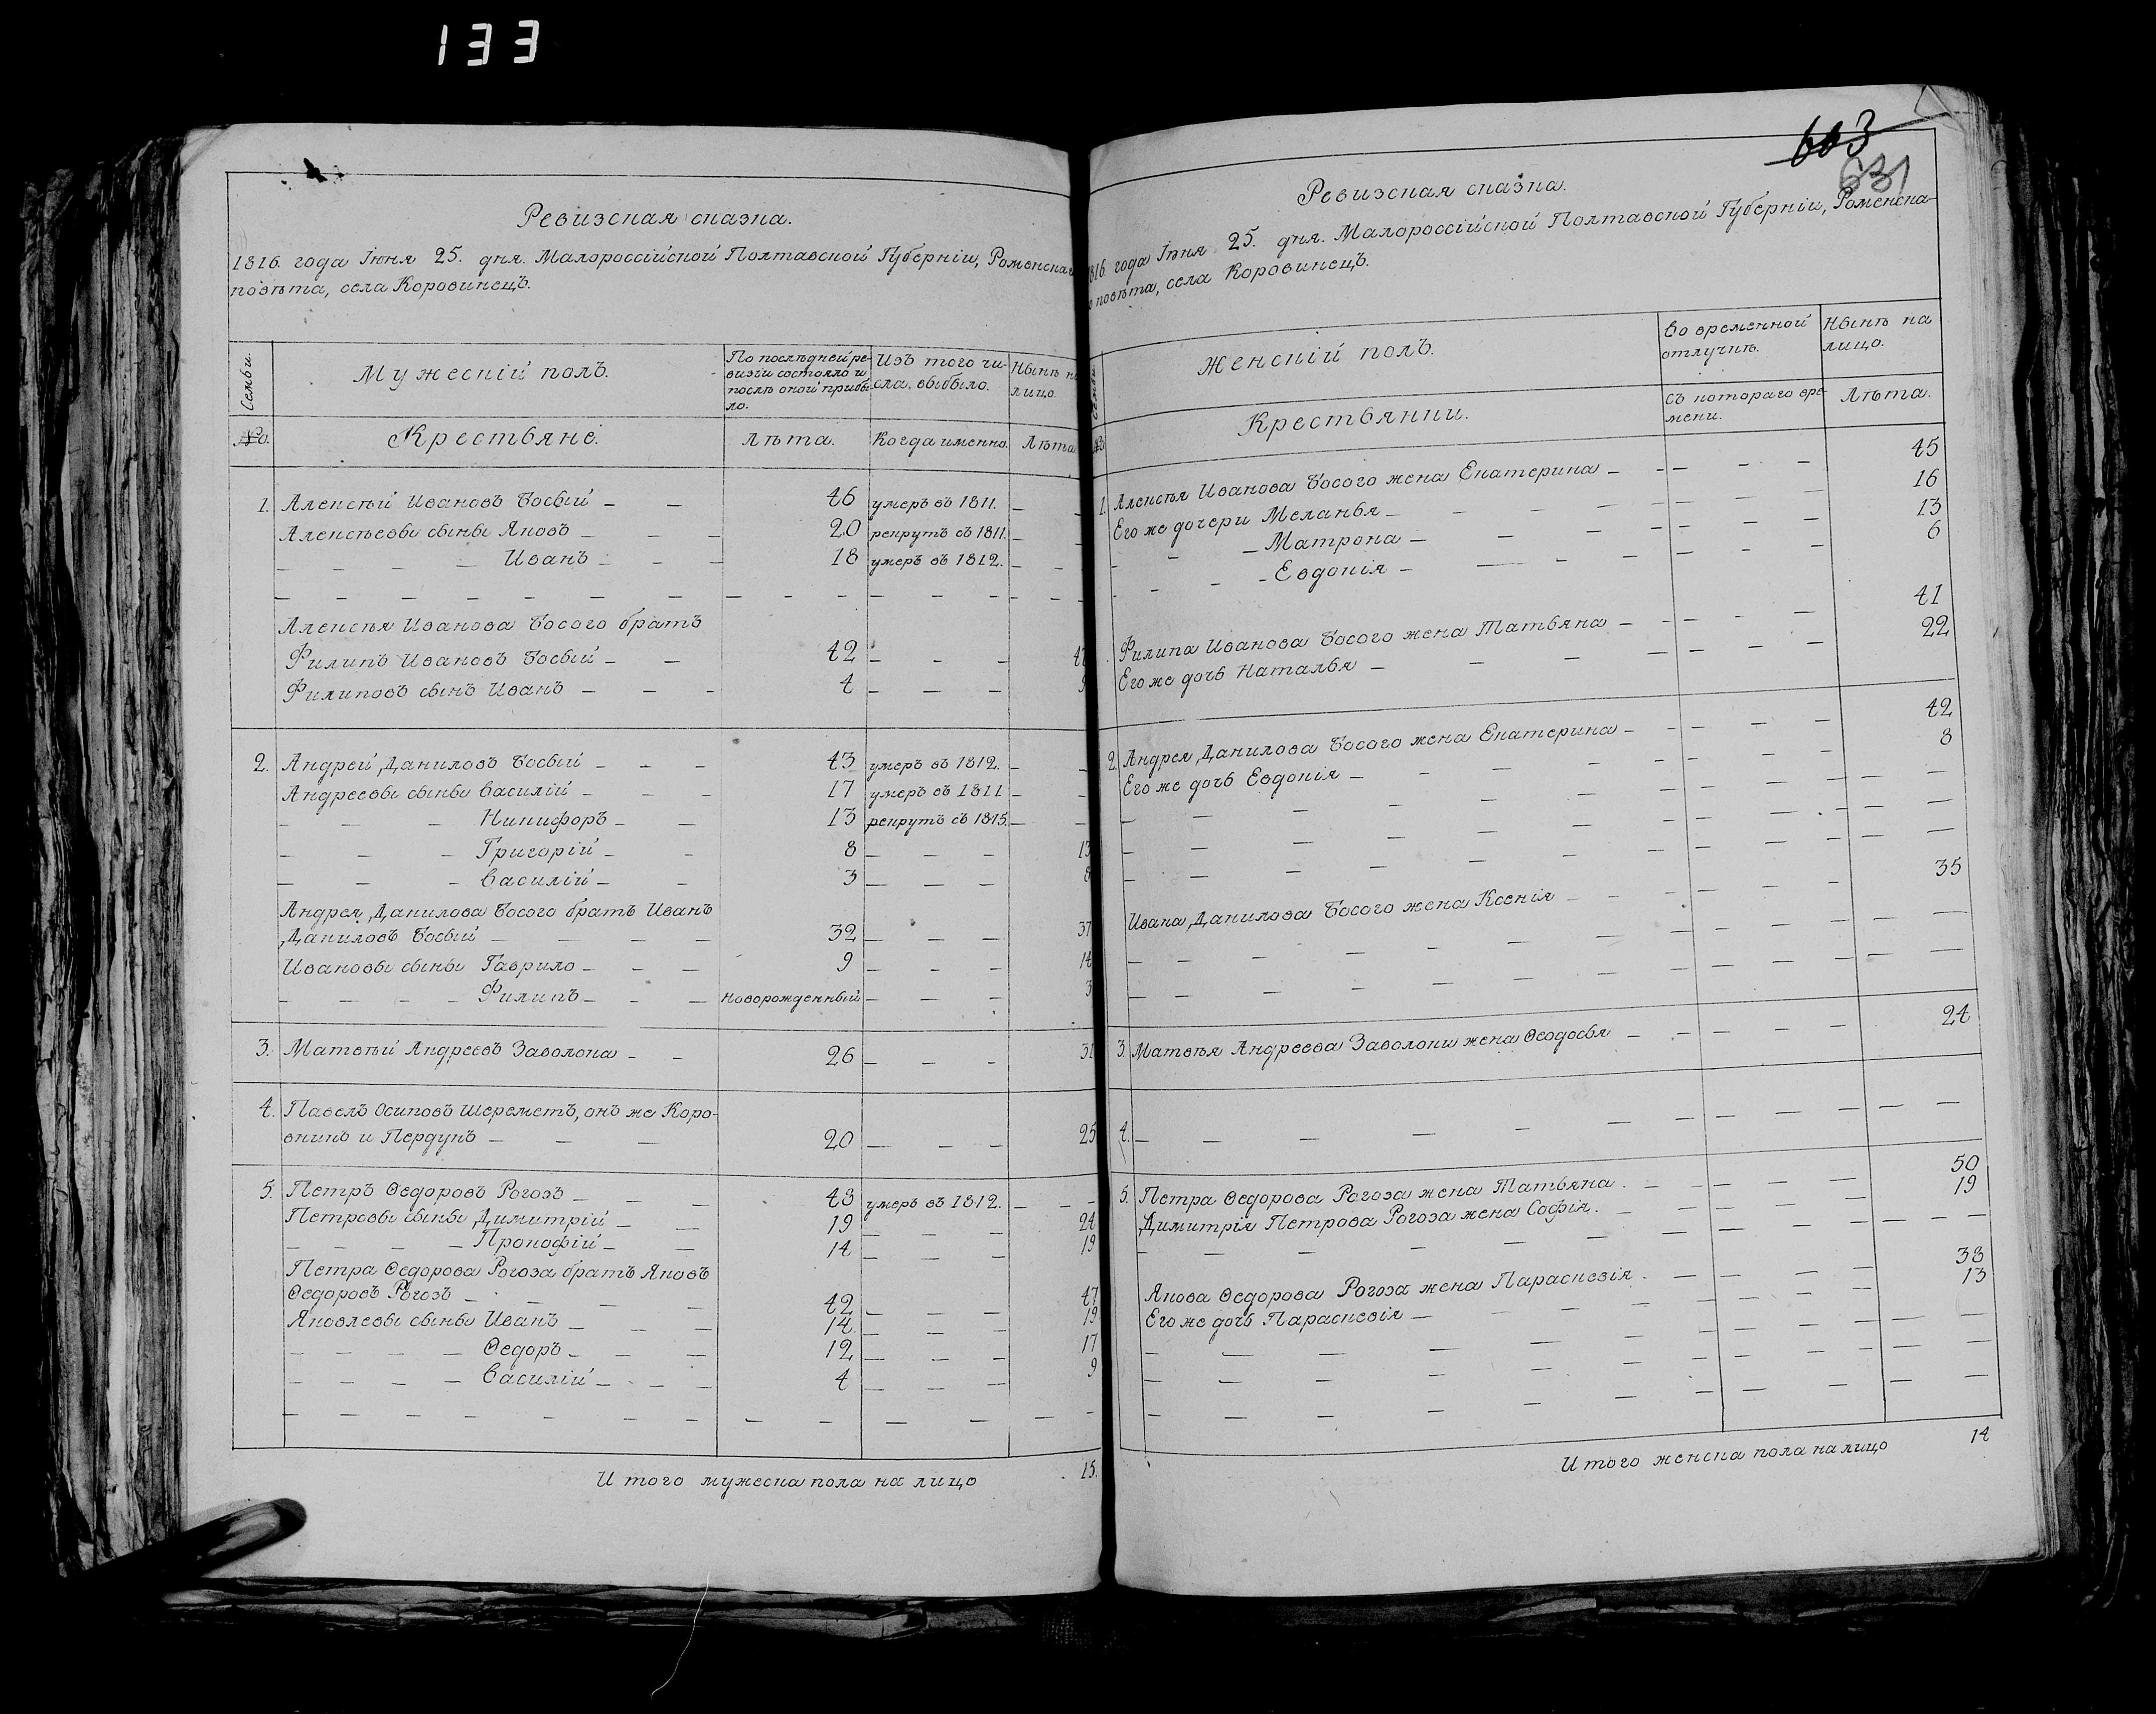 133
Ревизская сказка.
1816. года Іюня 25. дня. Малороссійской Полтавской Губерніи, Роменска
повѣта, села Коровинецъ.
Семьи.
Мужескій полъ.
По послѣдней ре-
визіи состояло и
послѣ оной прибы-
ло.
Изъ того чи-
сла, выбыло.
Нынѣ на
лицо.
No.
Крестьяне.
Лѣта.
Когда именно.
Лѣта
1. Алексѣй Ивановъ Босый — — 46 умеръ въ 1811. —
Алексѣевы сыны Яковъ — — — 20 рекрутъ съ 1811. —
— — — — Иванъ — — — 18 умеръ въ 1812. — —
Алексѣя Иванова Босого братъ
Филипъ Ивановъ Босый — — 42 — — — 47
Филиповъ сынъ Иванъ — — — 4 — — — 9
2. Андрей Даниловъ Босый — — — 43 умеръ въ 1812. — —
Андреевы сыны Василій — — — 17 умеръ въ 1811 — —
— — — Никифоръ — — 13 рекрутъ съ 1815. — —
— — — Григорій — — 8 — — — 13
— — — Василій — — 3 — — — 8
Андрея Данилова Босого братъ Иванъ
Даниловъ Босый — — — — 32 — — — 37
Ивановы сыны Гаврило — — — 9 — — — 14
— — — — Филипъ — — — новорожденный — — — 3
3. Матвѣй Андреевъ Заволока — — 26 — — — 31
4. Павелъ Осиповъ Шереметъ, онъ же Коро-
вникъ и Пердунъ — — — 20 — — — 25
5. Петръ Ѳедоровъ Рогозъ — — — 48 умеръ въ 1812. — — —
Петровы сыны Димитрій — — 19 — — — 24
— — — — Прокофій — — 14 — — — 19
Петра Ѳедорова Рогоза братъ Яковъ
Ѳедоровъ Рогозъ — — — — 42 — — — 47
Яковлевы сыны Иванъ — — — 14 — — — 19
— — — — Ѳедоръ — — — 12 — — — 17
— — — — Василій — — — 4 — — — 9
И того мужеска пола на лицо 15.
603
631
Ревизская сказка.
1816 года Іюня 25. дня. Малороссійской Полтавской Губерніи, Роменска-
о повѣта, села Коровинецъ.
Семьи
Женскій полъ.
Во временной
отлучкѣ.
Нынѣ на
лицо.
Крестьянки.
Съ котораго вре-
мени.
Лѣта.
1. Алексѣя Иванова Босого жена Екатерина — — — — 45
Его же дочери Меланья — — — — — — 16
— — — Матрона — — — — — — 13
— — — Евдокія — — — — — — 6
Филипа Иванова Босого жена Татьяна — — — — 41
Его же дочь Наталья — — — — — — — 22
2. Андрея Данилова Босого жена Екатерина — — — — 42
Его же дочь Евдокія — — — — — — — 8
Ивана Данилова Босого жена Ксенія — — — — — 35
3. Матвѣя Андреева Заволоки жена Ѳеодосья — — — — — 24
4. — — — — — — — — — — —
5. Петра Ѳедорова Рогоза жена Татьяна. — — — — 50
Димитрія Петрова Рогоза жена Софія. — — — — 19
Якова Ѳедорова Рогоза жена Параскевія. — — — — 38
Его же дочь Параскевія — — — — — — — 13
И того женска пола на лицо 14